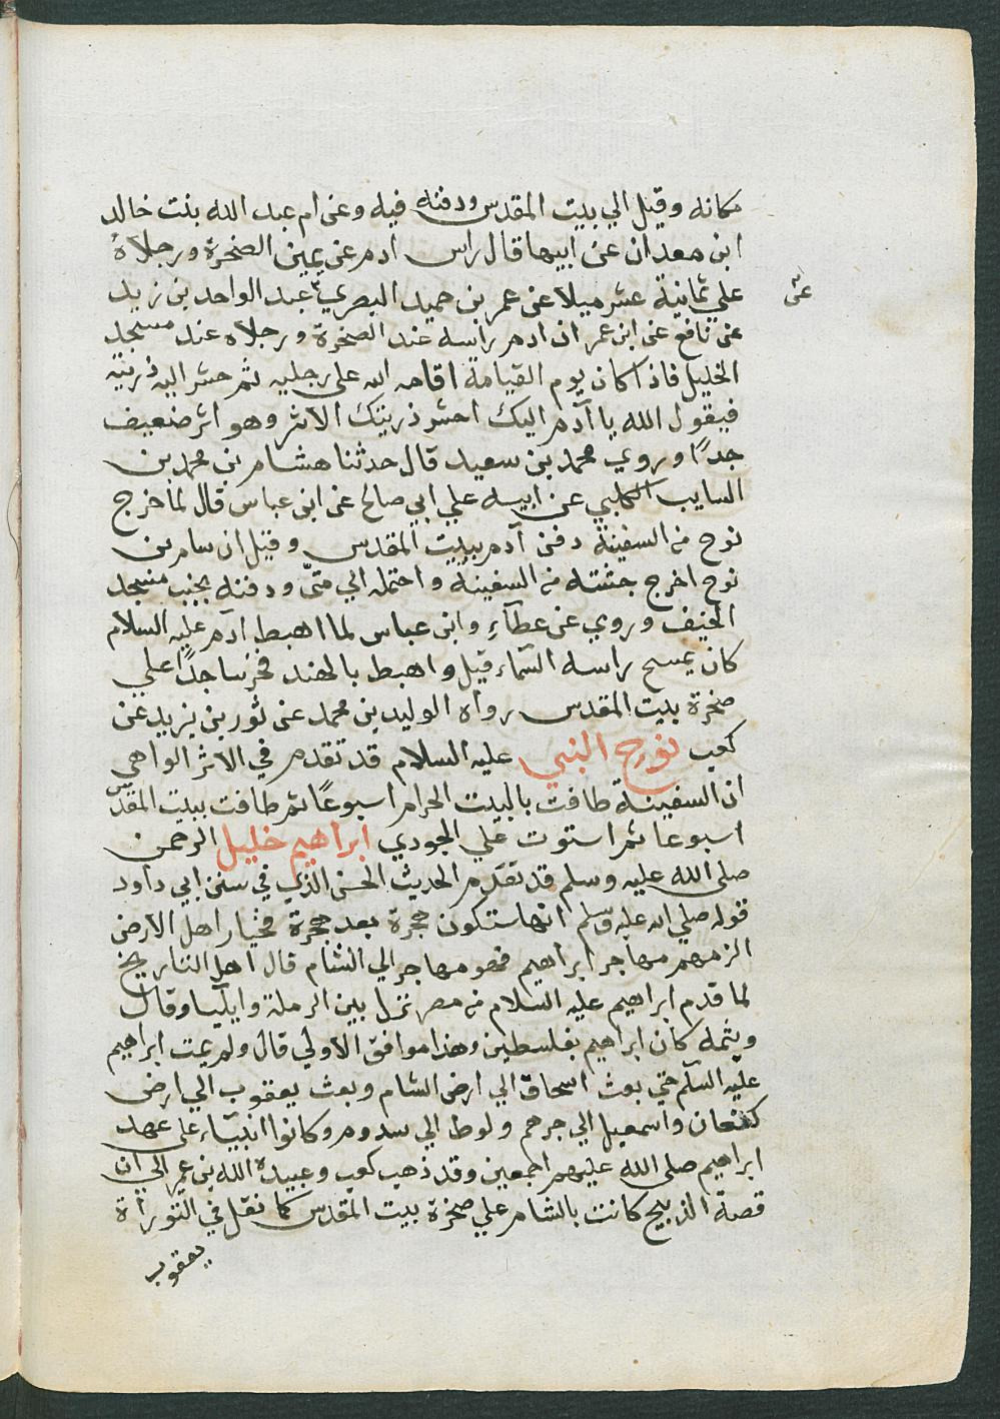 مكانه وقيل الي بيت المقدس ودفنه فيه وعن ام عبد الله بنت خالد
ابن معدان عن ابيها قال راس ادم عن يمين الصخرة ورجلاهُ
علي ثمانية عشر ميلا عن عمر بن حميد البصري عبد الواحد بن زيد
عن
عن نافع عن ابن عمر ان ادم راسه عند الصخرة ورجلاه عند مسجد
الخليل فاذا كان يوم القيامة اقامه الله على رجليه ثم حشر اليه ذريته
فيقول الله يا آدم اليك احشر ذريتك الاثر وهو اثر ضعيف
جدًا وروي محمد بن سعيد قال حدثنا هشام بن محمد بن
السايب الكلبي عن ابيه علي ابي صالح عن ابن عباس قال لما خرج
نوح من السفينة دفن آدم ببيت المقدس وقيل ان سام بن
نوح اخرج جثته من السفينة واحتمله الي متىّ ودفنه بجنب مسجد
الخيف وروي عن عطآءِ وابن عباس لما اهبط ادم عليه السلام
كان يمسح راسه السّماء قيل واهبط بالهند فخر ساجدًا علي
صخرة بيت المقدس رواه الوليد بن محمد عن ثور بن يزيد عن
كعب نوح النبي عليه السلام قد تقدم في الاثر الواهي
ان السفينة طافت بالبيت الحرام اسبوعًا ثم طافت ببيت المقدس
اسبوعا ثم استوت علي الجودي ابراهيم خليل الرحمن
صلى الله عليه وسلم قد تقدّم الحديث الحسن الذي في سنن ابي داود
قوله صلي الله عليه وسلم انها ستكون هجرة بعد هجرة فخيار اهل الارض
الزمهم مهاجر ابراهيم فهو مهاجر الي الشام قال اهل التاريخ
لما قدم ابراهيم عليه السلام من مصر نزل بين الرملة وايليا وقال
وثمه كان ابراهيم بفلسطين وهذا موافق الاولي قال ولم يمت ابراهيم
عليه السلم حتي بعث اسحاق الي ارض الشام وبعث يعقوب الي ارض
كنعان واسمعيل الي جرهم ولوط الي سدوم وكانوا انبيّاء على عهد
ابراهيم صلى الله عليهم اجمعين وقد ذهب كعب وعبيدة الله بن عمر الي ان
قصة الذبيح كانت بالشام علي صخرة بيت المقدس كما نقل في التوراة
يعقوب